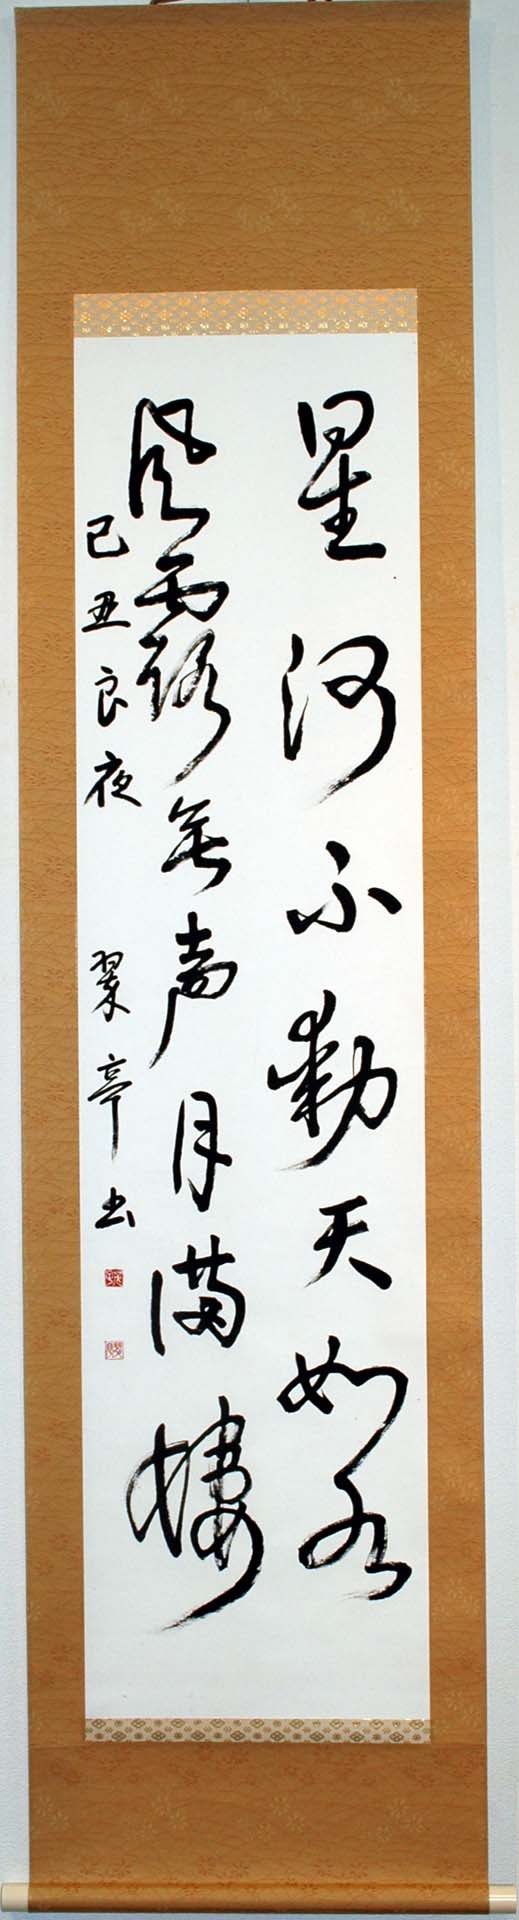 星河不動天如水
風露無声月満楼
己丑良夜 翠亭書